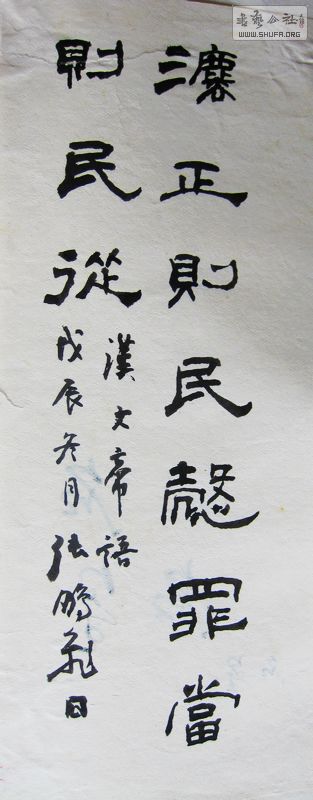 書藝公社
WWW.SHUFA.ORG
灋正則民慤罪當
則民從
漢文帝語
戊辰冬月張鵬飛